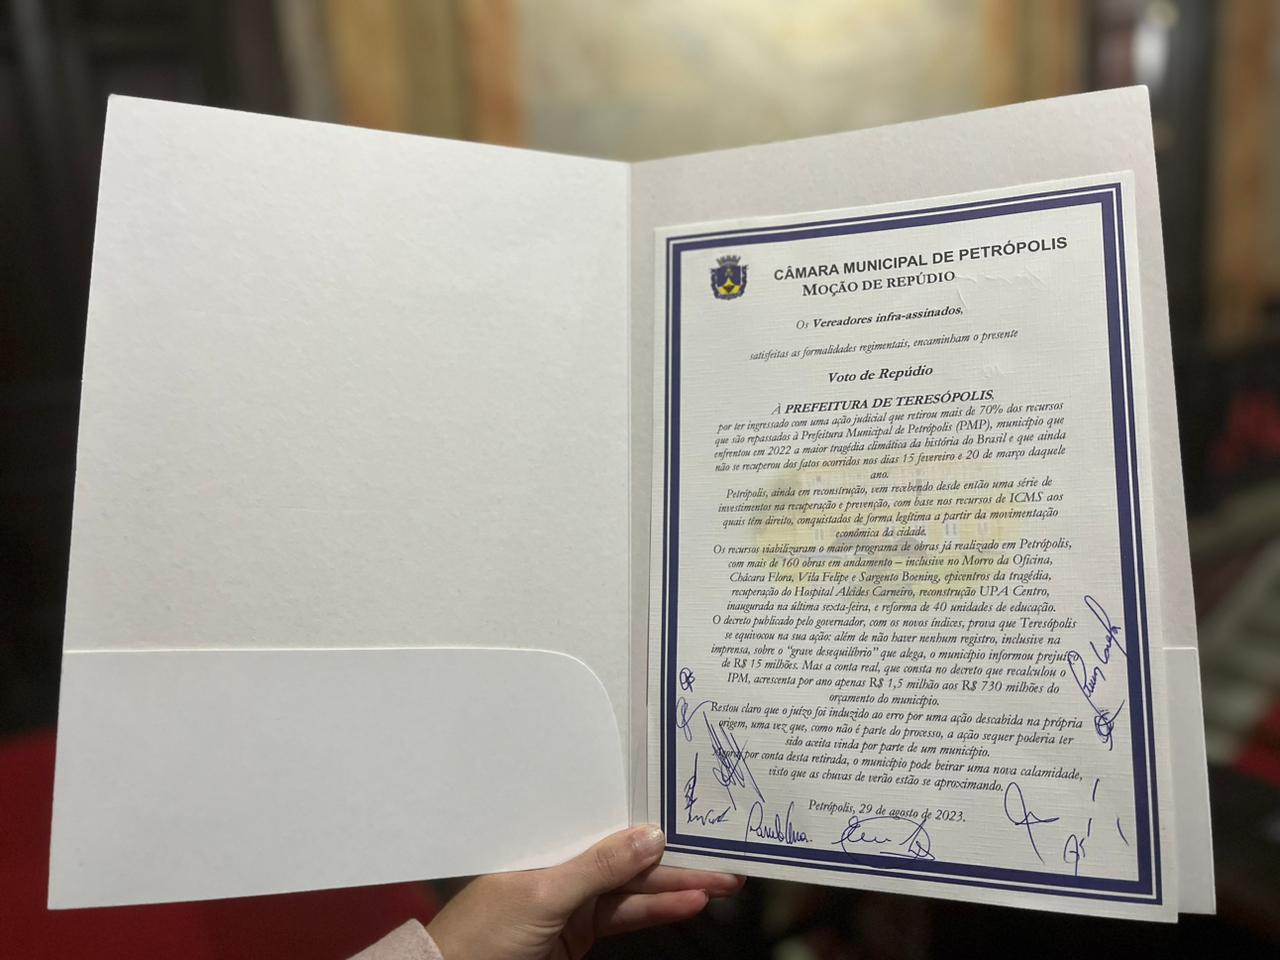 CÂMARA MUNICIPAL DE PETRÓPOLIS
MOÇÃO DE REPÚDIO
Os Vereadores infra-assinados,
satisfeitas as formalidades regimentais, encaminham o presente
Voto de Repúdio
À PREFEITURA DE TERESÓPOLIS,
por ter ingressado com uma ação judicial que retirou mais de 70% dos recursos
que são repassados à Prefeitura Municipal de Petrópolis (PMP), município que
enfrentou em 2022 a maior tragédia climática da história do Brasil e que ainda
não se recuperou dos fatos ocorridos nos dias 15 fevereiro e 20 de março daquele
ano.
Petrópolis, ainda em reconstrução, vem recebendo desde então uma série de
investimentos na recuperação e prevenção, com base nos recursos de ICMS aos
quais têm direito, conquistados de forma legítima a partir da movimentação
econômica da cidade.
Os recursos viabilizaram o maior programa de obras já realizado em Petrópolis,
com mais de 160 obras em andamento – inclusive no Morro da Oficina,
Chácara Flora, Vila Felipe e Sargento Boening, epicentros da tragédia,
recuperação do Hospital Alcides Carneiro, reconstrução UPA Centro,
inaugurada na última sexta-feira, e reforma de 40 unidades de educação.
O decreto publicado pelo governador, com os novos índices, prova que Teresópolis
se equivocou na sua ação: além de não haver nenhum registro, inclusive na
imprensa, sobre o "grave desequilíbrio" que alega, o município informou prejuízo
de R$ 15 milhões. Mas a conta real, que consta no decreto que recalculou o
IPM, acrescenta por ano apenas R$ 1,5 milhão aos R$ 730 milhões do
orçamento do município.
Restou claro que o juízo foi induzido ao erro por uma ação descabida na própria
origem, uma vez que, como não é parte do processo, a ação sequer poderia ter
sido aceita vinda por parte de um município.
por conta desta retirada, o município pode beirar uma nova calamidade,
visto que as chuvas de verão estão se aproximando.
Petrópolis, 29 de agosto de 2023.